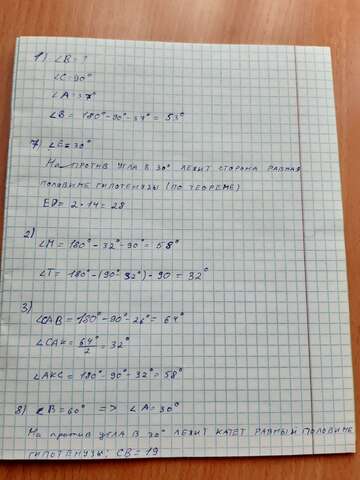 1) ∠B = ?
∠C = 90°
∠A = 37°
∠B = 180° - 90° - 37° = 53°
7) ∠E = 30°
На против угла в 30° лезит сторона равная
половине гипотенузы (по теореме)
ED = 2 · 14 = 28
2)
∠M = 180° - 32° - 90° = 58°
∠T = 180° - (90° 32°) - 90 = 32°
3)
∠CAB = 180° - 90° - 26° = 64°
∠CAK = 64°/2 = 32°
∠AKC = 180° - 90° - 32° = 58°
8) ∠B = 60° => ∠A = 30°
На против угла в 30° лезит катет равный половине
гипотенузы: CB = 19